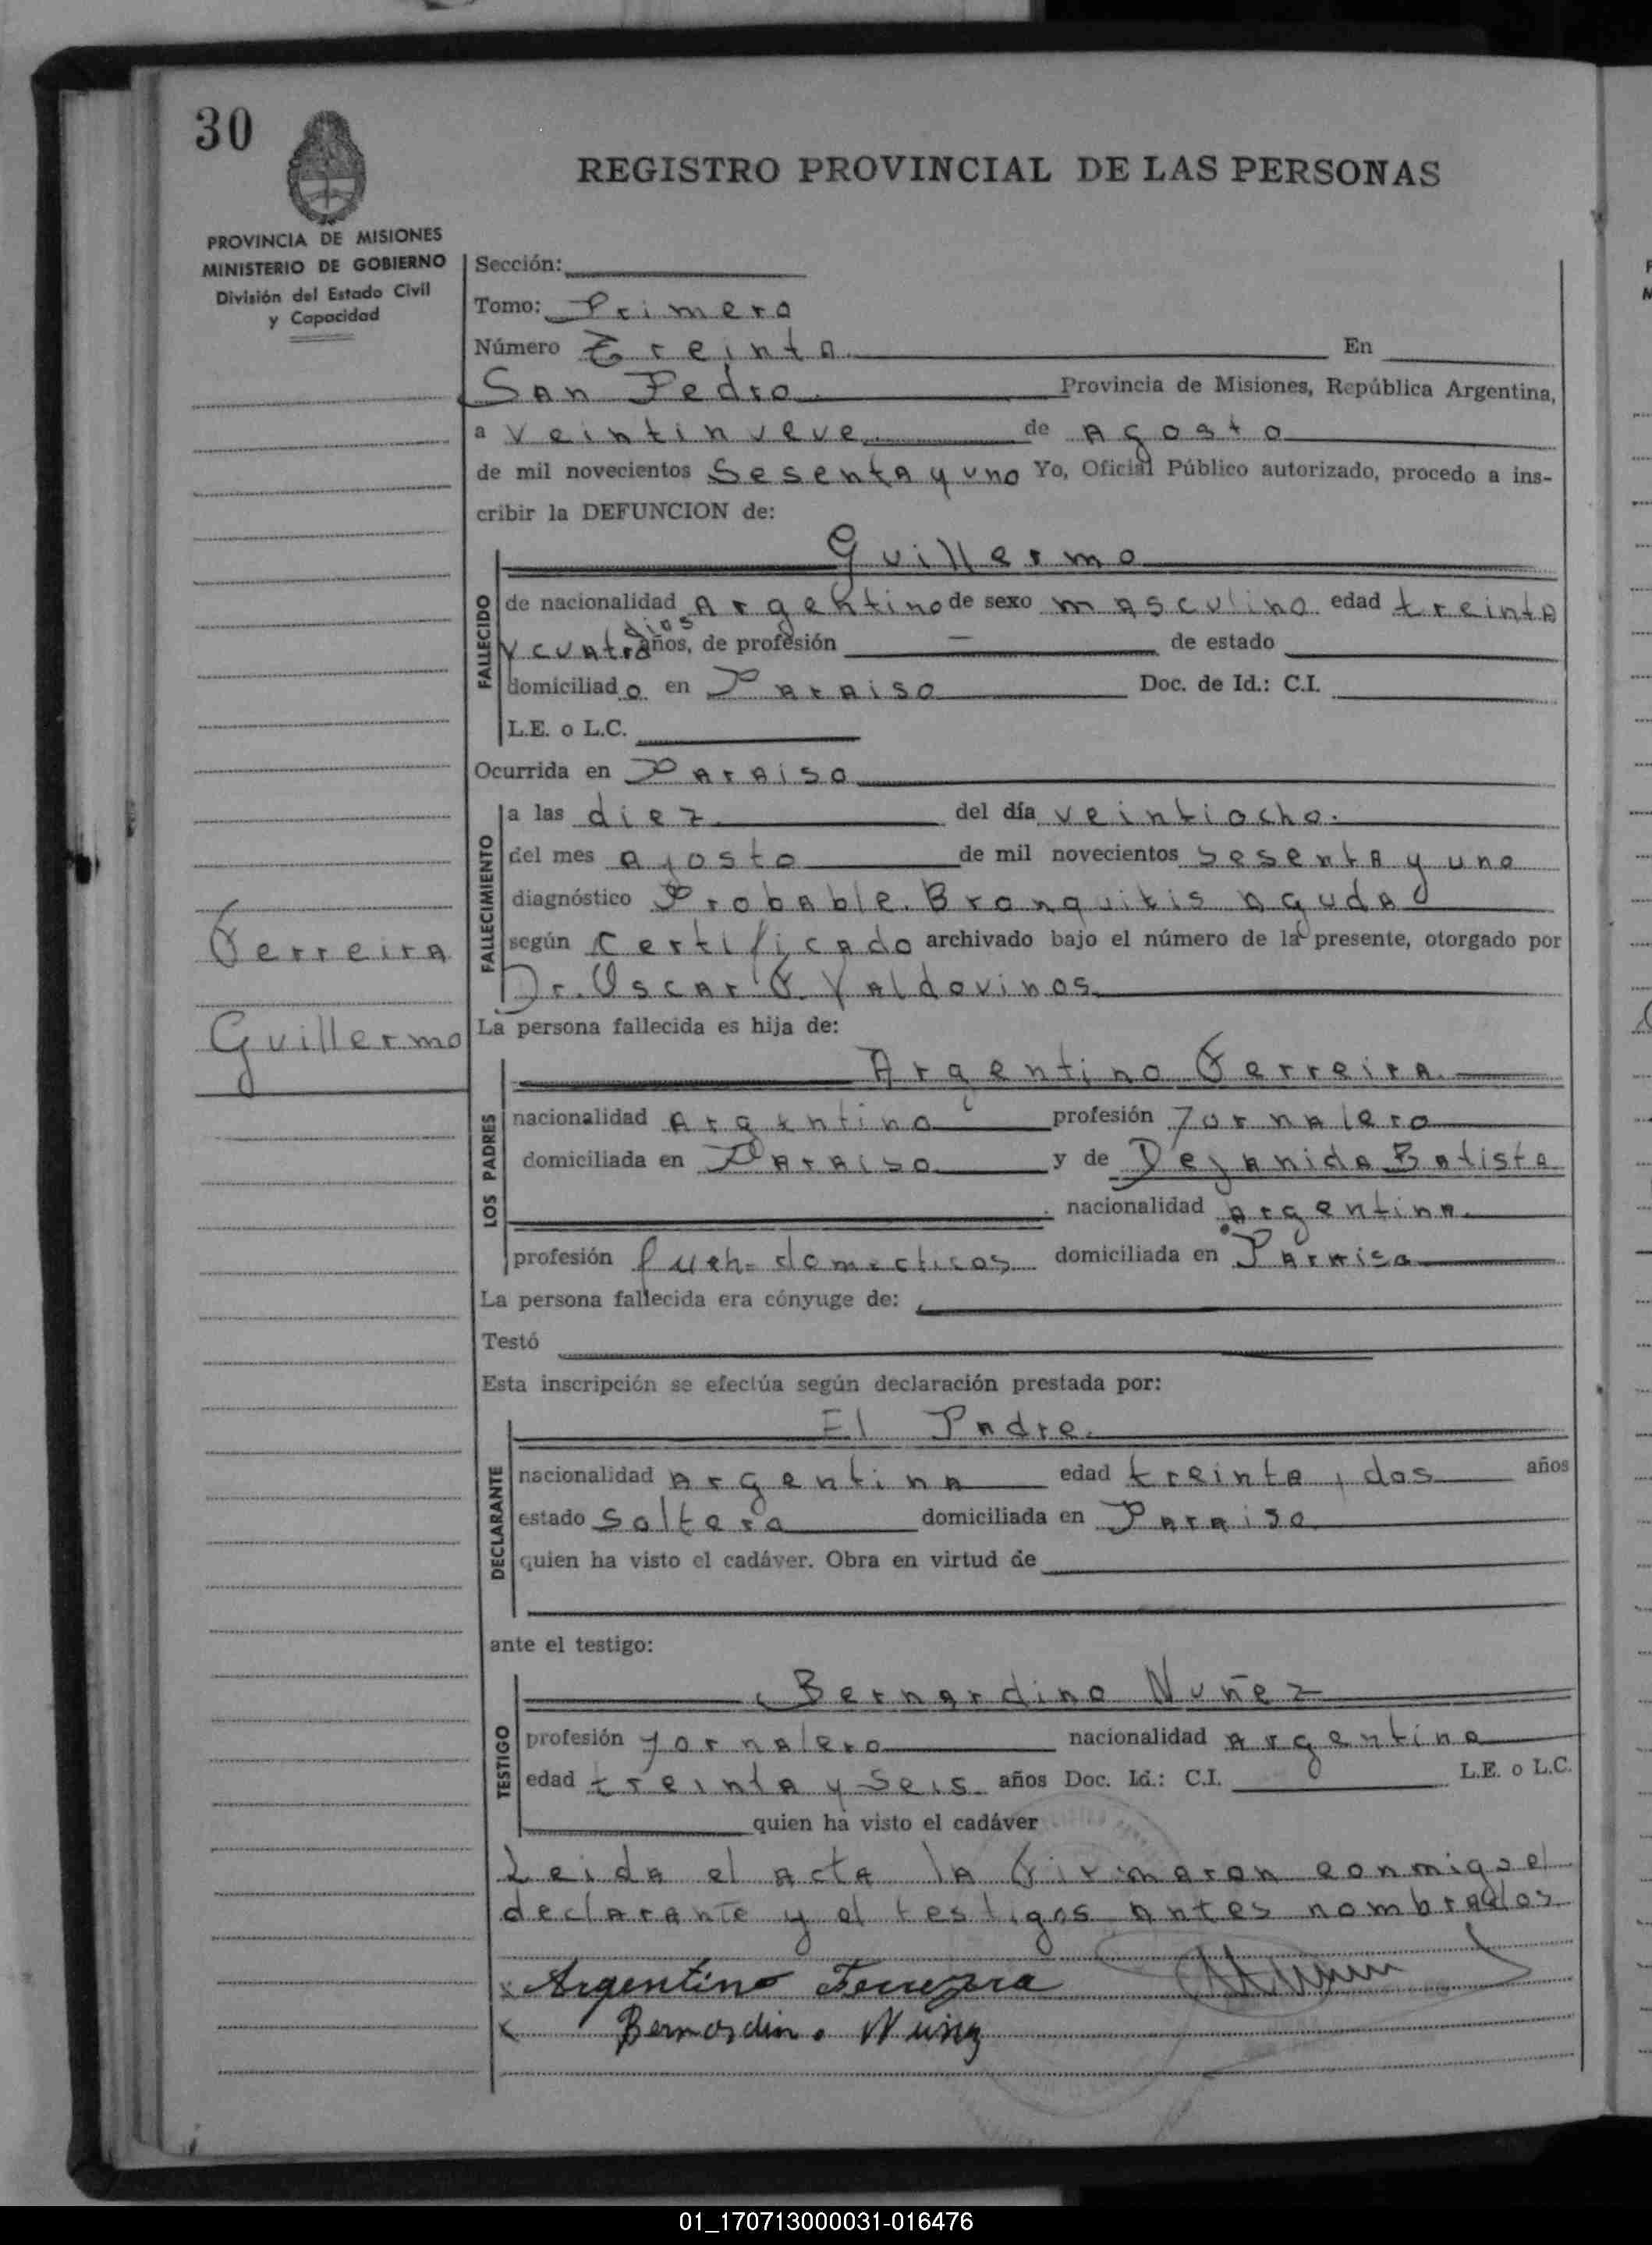 30
REGISTRO PROVINCIAL DE LAS PERSONAS
PROVINCIA DE MISIONES
MINISTERIO DE GOBIERNO
División del Estado Civil
y Capacidad
Sección:
Tomo: Primero
Número Treinta En
San Pedro Provincia de Misiones, República Argentina,
a veintinueve de Agosto
de mil novecientos Sesenta y uno Yo, Oficial Público autorizado, procedo a ins-
cribir la DEFUNCION de:
Guillermo
FALLECIDO
de nacionalidad Argentino de sexo masculino edad treinta
días
y cuatro años, de profesión — de estado
domiciliado en Paraiso Doc. de Id.: C.I.
L.E. o L.C.
Ocurrida en Paraiso
FALLECIMIENTO
a las diez del día veintiocho.
del mes agosto de mil novecientos sesenta y uno
diagnóstico Probable Bronquitis aguda
según Certificado archivado bajo el número de la presente, otorgado por
Dr. Oscar F. Valdovinos
Ferreira
Guillermo
La persona fallecida es hija de:
Argentino Ferreira
LOS PADRES
nacionalidad Argentino profesión Jornalero
domiciliada en Paraiso y de Dejanida Batista
nacionalidad argentina
profesión domecticos domiciliada en Paraiso
La persona fallecida era cónyuge de:
Testó
Esta inscripción se efectúa según declaración prestada por:
El Padre
DECLARANTE
nacionalidad Argentina edad treinta y dos años
estado Soltero domiciliada en Paraiso
quien ha visto el cadáver. Obra en virtud de
ante el testigo:
Bernardino Nuñez
TESTIGO
profesión jornalero nacionalidad argentino
edad treinta y seis años Doc. Id.: C.I. L.E. o L.C.
quien ha visto el cadáver
Leida el acta la firmaron conmigo el
declarante y el testigos antes nombrados
x Argentino Ferreyra
x Bernardino Nuñez
01_170713000031-016476